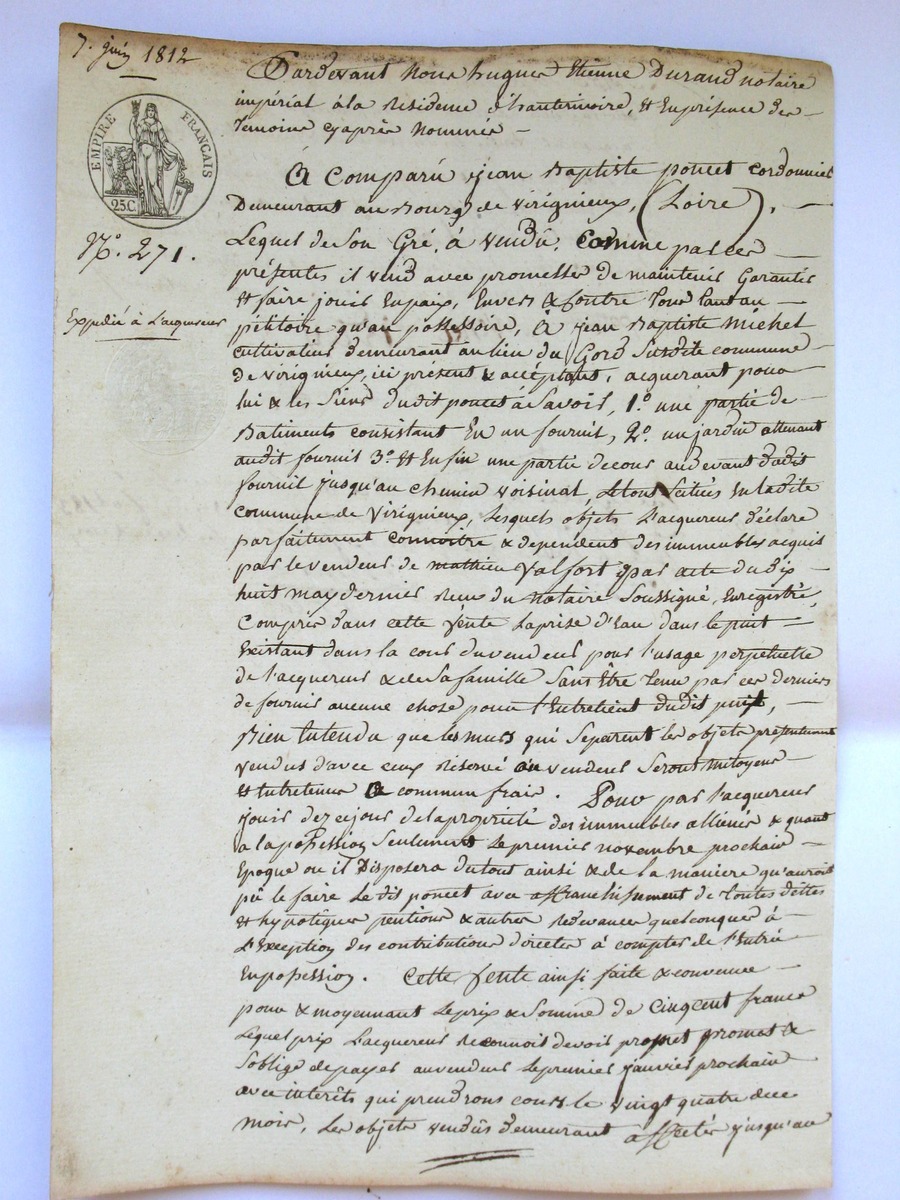 7. juin 1812
EMPIRE FRANÇAIS
25C.
N.º 271.
Expédié à L'acquereur
Pardevant Nous hugues Etienne Durand notaire
impérial à la Residence d'hauterivoire, et En présence des
Temoins cyaprès Nommés —
A Comparû jean Baptiste poncet Cordonnier
Demeurant au Bourg de Virignieux, (Loire), —
Lequel de Son Gré, à Vendû, Comme par ces —
présentes il vend avec promesse de maintenir Garantir
et faire jouir En paix, Envers & Contre Tous tant au —
pétitoire qu'au possessoire, à jean Baptiste Michel
Cultivateur demeurant au lieu du Gord Susdite commune
de Virignieux, ici présent & acceptant, acquerant pour
lui & les Siens dudit poncet à Savoir, 1.º une partie de
Batiments Consistant En un fournil, 2.º un jardin attenant
audit fournil 3.º et Enfin une partie de cour audevant dudit
fournil jusqu'au chemin voisinal, Le tout Scitués En ladite
Commune de Virignieux, Lesquels objets L'acquereur déclare
parfaitement connoitre & dependent des immeubles acquis
par le vendeur de mathieu Valfort par acte du dix
huit may dernier Reçu du notaire Soussigné, Enregistré,
Compris dans cette Vente La prise d'Eau dans le puit —
Existant dans la cour du vendeur pour l'usage perpetuelle
de l'acquereur & de Sa famille Sans Être Tenu par ces derniers
de fournir aucune chose pour l'Entretient dudit puit, —
Bien Entendu que les murs qui Separent les objets présentement
vendus d'avec ceux réservé au vendeur Seront mitoyens
et Entretenus à commun frais. Pour par l'acquereur
jouir dez ce jour de la propriété des immeubles alliénés & quant
a la possession Seulement Le premier novembre prochain —
Epoque ou il Disposera du tout ainsi & de la maniere qu'auroit
pû le faire Le dit poncet avec affranchissement de Toutes dettes
et hypotèques pentions & autres Redevances quelconques à —
L'Exception des contributions directes à compter de l'Entrée
En possession. Cette Vente ainsi faite & convenue —
pour & moyennant Le prix & Somme de Cinq cent francs
Lequel prix L'acquereur Reconnoit devoir promet &
S'oblige de payer au vendeur Le premier janvier prochain
avec intérêts qui prendrons cours le vingt quatre du
mois, Les objets vendûs demeurant affectés jusqu'au